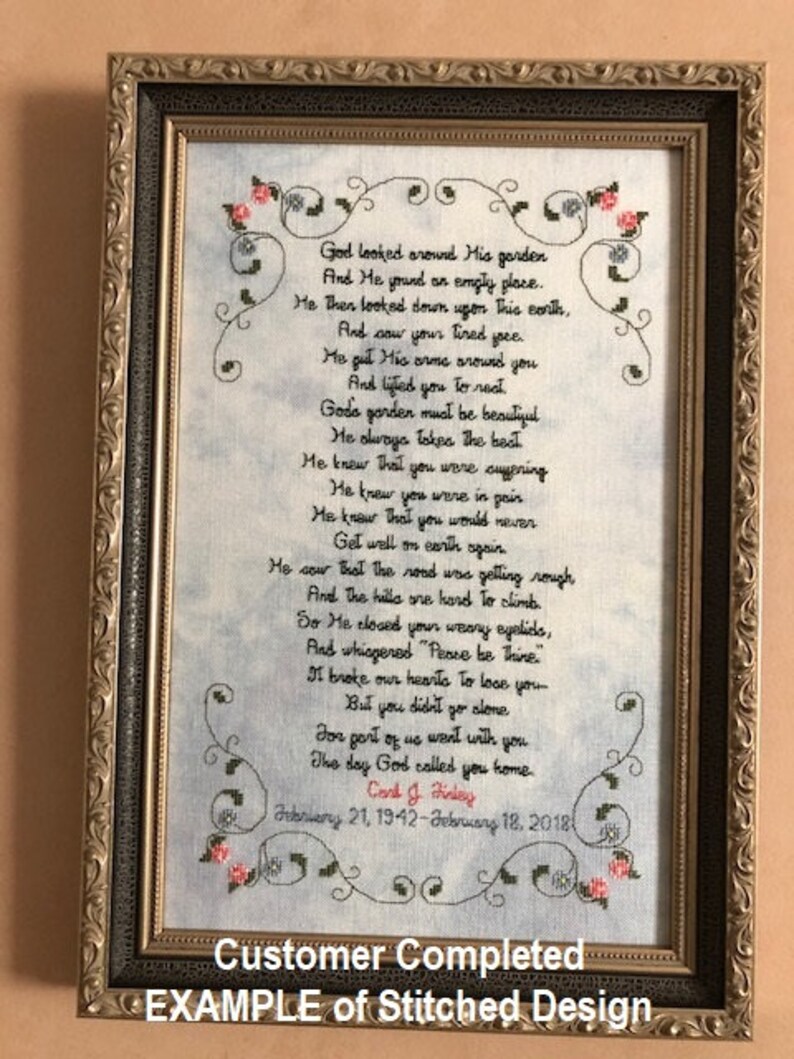 God looked around His garden
And He found an empty place.
He then looked down upon this earth,
And saw your tired face.
He put His arms around you
And lifted you to rest.
God's garden must be beautiful
He always takes the best.
He knew that you were suffering
He knew you were in pain
He knew that you would never
Get well on earth again.
He saw that the road was getting rough,
And the hills are hard to climb.
So He closed your weary eyelids,
And whispered "Peace be Thine."
It broke our hearts to lose you—
But you didn't go alone
For part of us went with you
The day God called you home.
Carl J. Finley
February 21, 1942-February 18, 2018
Customer Completed
EXAMPLE of Stitched Design